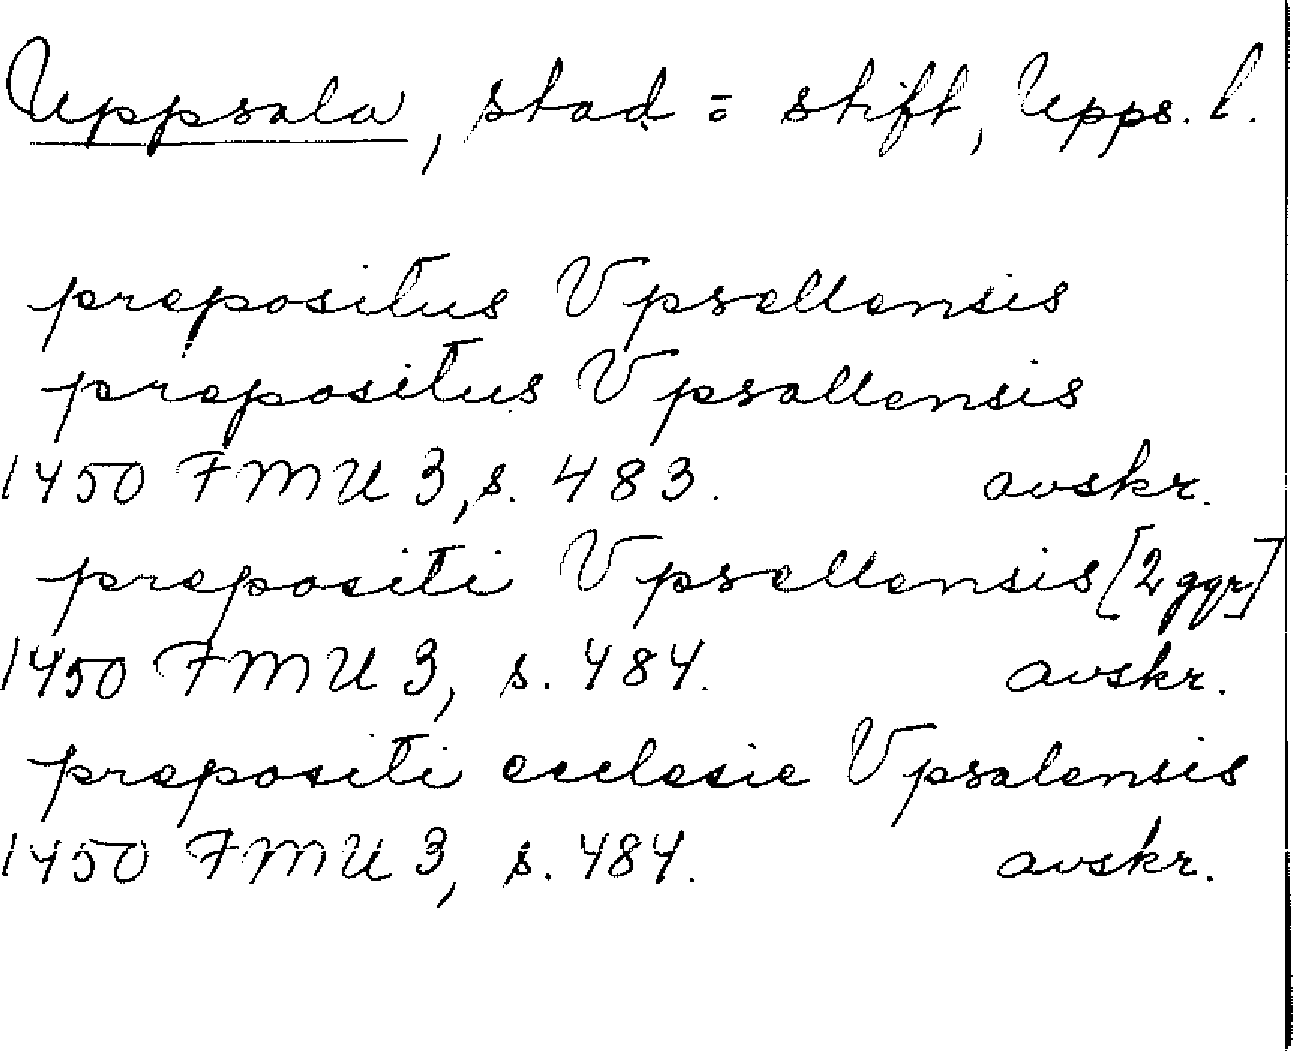 Uppsala, stad = stift, Upps. l.
prepositus Vpsellensis
prepositus Vpsallensis
1450 FMU 3, s. 483. avskr.
prepositi Vpsellensis [2 ggr]
1450 FMU 3, s. 484. avskr.
prepositi ecclesie Vpsalensis
1450 FMU 3, s. 484. avskr.